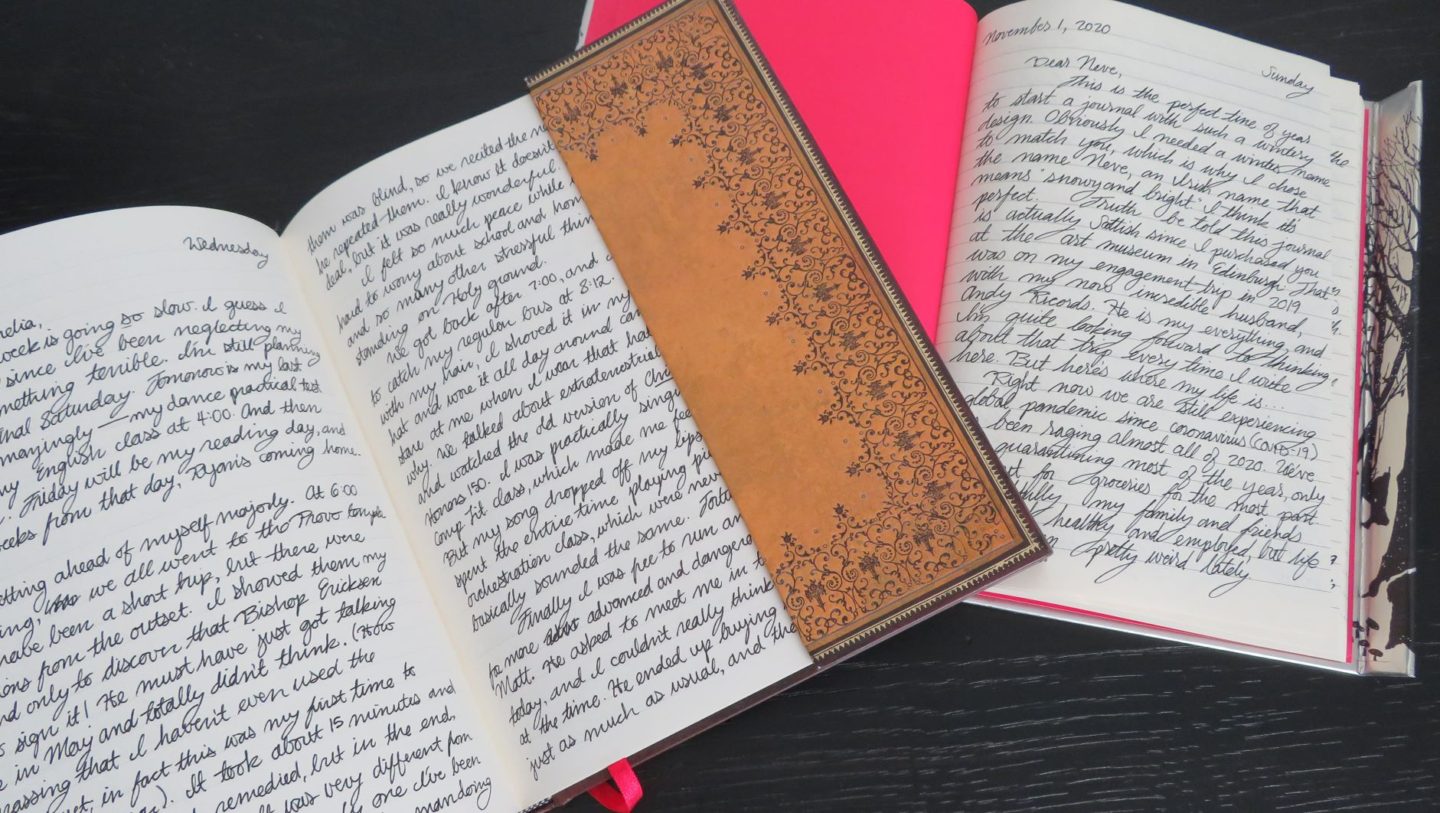 Wednesday
week is going so slow. I guess I
since I've been neglecting my
something terrible. I'm still planning
Saturday. Tomorrow is my last
my dance practical test
English class at 4:00. And then
Friday will be my reading day, and
weeks from that day, Ryan's coming home.
getting ahead of myself majorly. At 6:00
we all went to the Provo temple
have been a short trip, but there were
from the outset. I showed them my
only to discover that Bishop Ericksen
sign it! He must have just got talking
in May and totally didn't think. (How
that I haven't even used the
in fact this was my first time to
It took about 15 minutes and
remedied, but in the end
was very different from
one I've been
them was blind, so we recited the
he repeated them. I know it doesn't
deal, but it was really wonderful
I felt so much peace while
hard to worry about school and
and so many other stressful
standing on Holy ground.
We got back after 7:00, and
to catch my regular bus at 8:12.
with my hair, I shoved it in my
hat and wore it all day around
stare at me when I wear that
why. We talked about extraterrestrial
and watched the old version of
Honors 150. I was practically
comp. lit class, which made me
But my song dropped off my
spent the entire time playing
orchestration class, which were
basically sounded the same.
Finally I was free to run
to more advanced and
Matt. He asked to meet me in
today, and I couldn't really think
at the time. He ended up buying
just as much as usual, and the
November 1, 2020
Sunday
Dear Neve,
This is the perfect time of year
to start a journal with such a wintery
design. Obviously I needed a winter name
to match you, which is why I chose
the name Neve, an Irish name that
means "snowy and bright." I think it's
perfect. Truth be told this journal
is actually Scottish since I purchased you
at the art museum in Edinburgh. That
was on my engagement trip in 2019
with my now incredible husband,
Andy Records. He is my everything, and
I'm quite looking forward to thinking
about that trip every time I write
here. But here's where my life is...
Right now we are still experiencing
global pandemic since coronavirus (COVID-19)
been raging almost all of 2020. We've
quarantining most of the year, only
for groceries for the most part
my family and friends
healthy and employed, but life
pretty weird lately